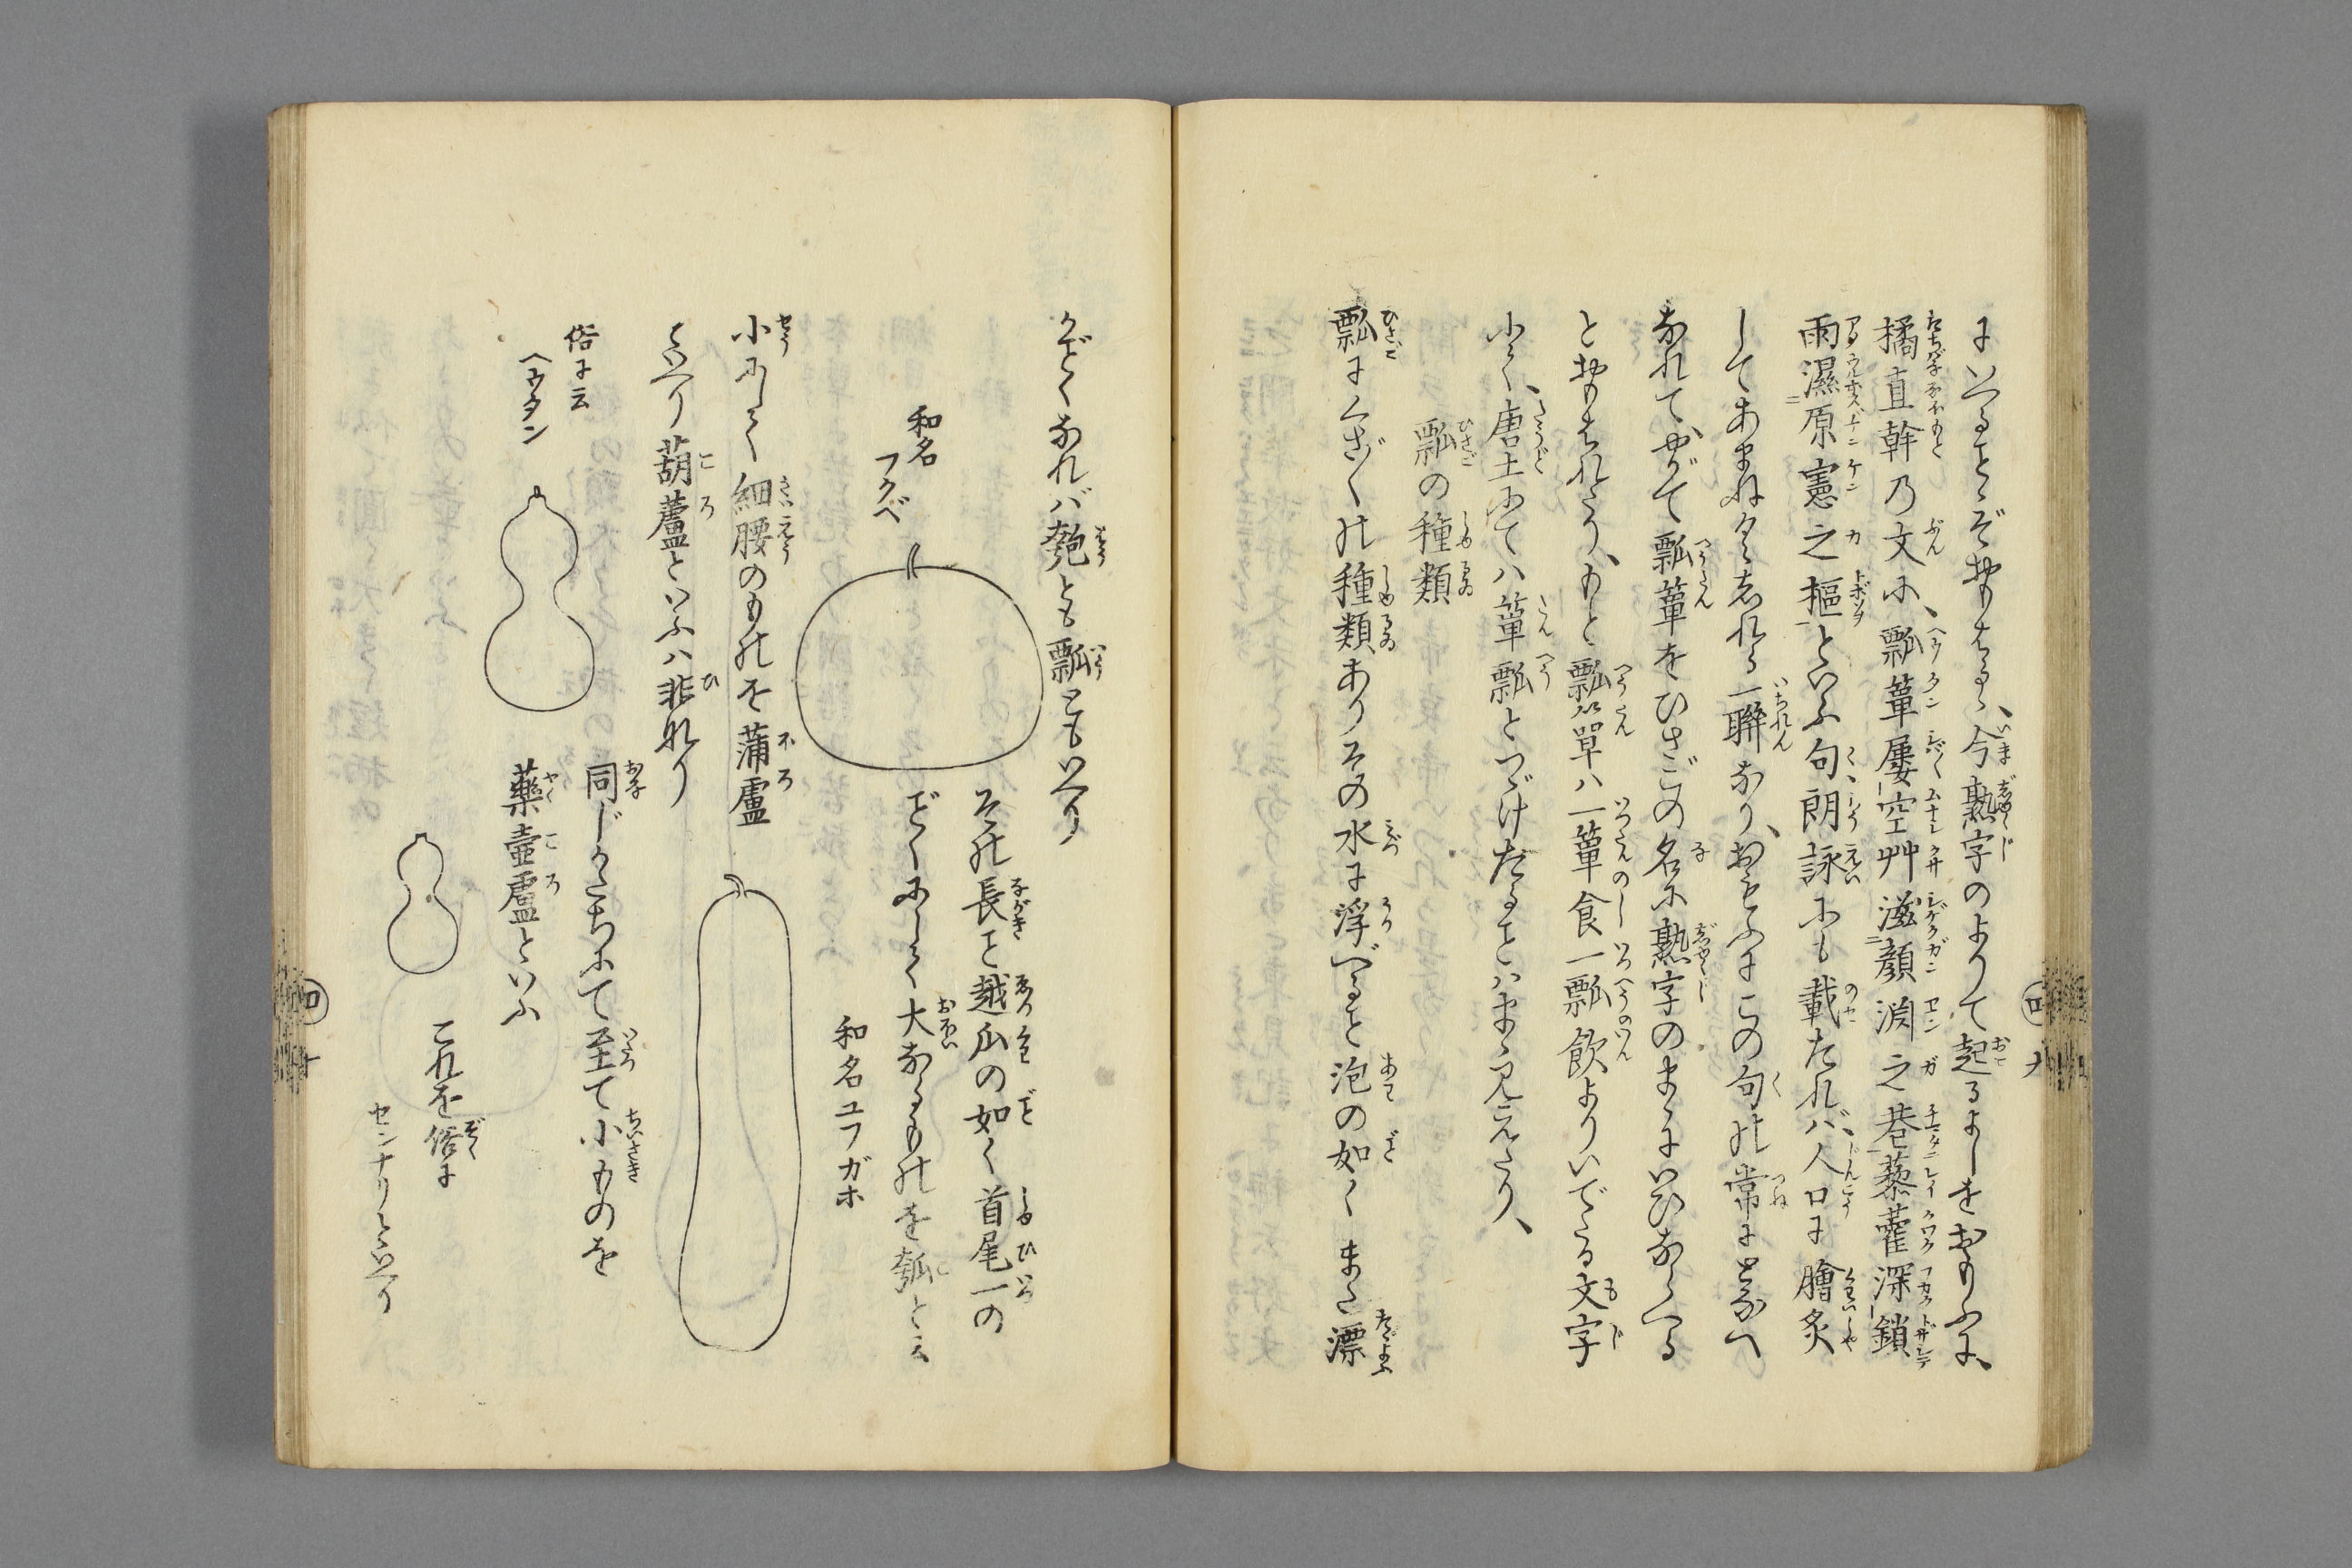 にいへることぞおもはるゝ、今熟字のよりて起るよしをおもふに、
橘直幹乃文に、瓢簞屢空艸滋顔渕之巷藜藿深鎖
雨濕原憲之樞といふ句朗詠にも載たれバ、人口に膾炙
してあまねくしれる一聯なり、おもふにこの句の常にとなへ
なれて、やがて瓢簞をひさごの名に熟字のまゝにいひならへる
とおもはれたり、もと瓢簞ハ一簞食一瓢飲よりいでたる文字
にて、唐土にてハ簞瓢とつゞけたることハまゝ見えたり、
瓢の種類
瓢にくさ〴〵の種類ありその水に浮べること泡の如くまた漂
がごとくなれバ匏とも瓢ともいへり
その長こと越瓜の如く首尾一の
ごとくにして大なるものを瓠と云
和名
フクベ
和名ユフガホ
小にして細腰のものを蒲盧
といへり葫蘆といふハ非なり
俗に云
ヘウタン
同じかたちにて至て小ものを
藥壺盧といふ
これを俗に
センナリといへり
四
十